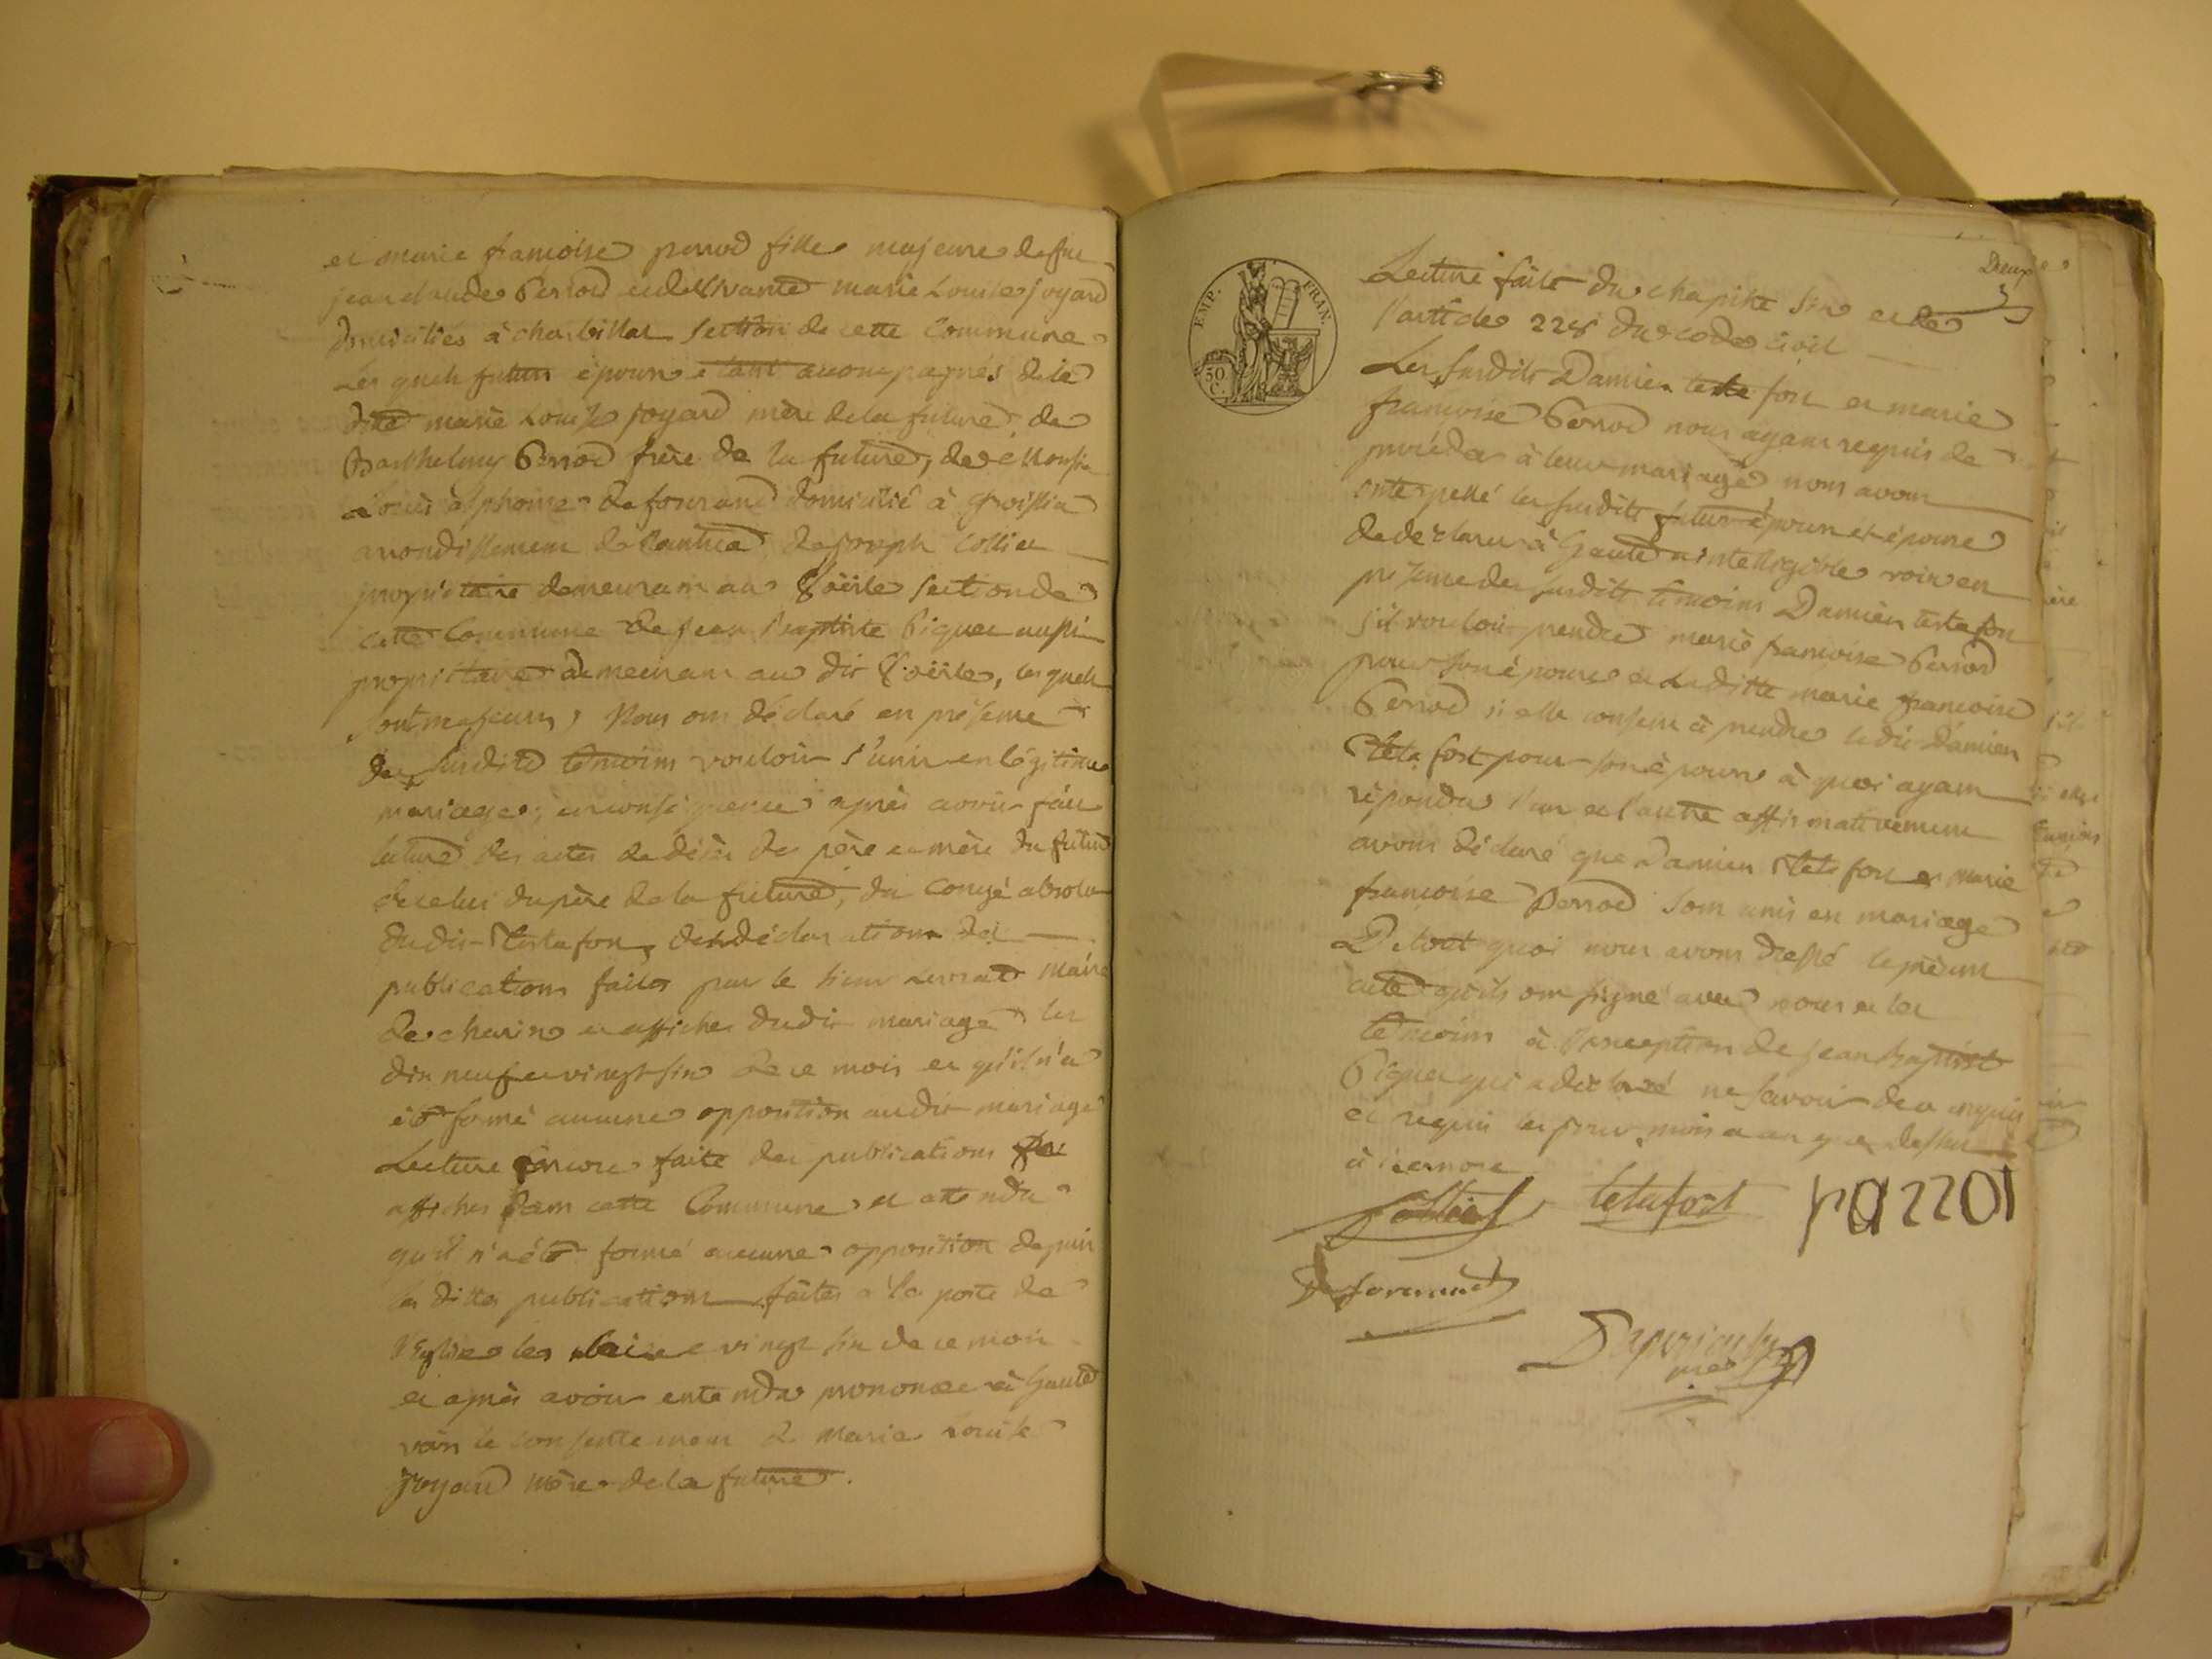 et marie françoise perrod fille majeure de feu
jean claude Perrod et de vivante marie Louise joyard
domiciliés à charbillat section de cette Commune
Les quels futurs époux étant accompagnés de la
dite marie Louise joyard mère de la future, de
Barthelmy Perrod frère de la future, de Monsieur
Louis alphonse deforcrand domicilié à Groissia
arrondissement de Nantua de joseph Collier
propriétaire demeurant au section de
cette Commune de Jean Baptiste Piquet aussi
propriétaire demeurant au dit les quels
sont majeurs, Nous ont déclaré en présence
des susdits témoins vouloir s'unir en légitime
mariage; en conséquence après avoir fait
lecture des actes de décès des père et mère du futur
de celui du père de la future, du Congé absolu
dudit Testafort, des déclarations des
publications faites par le sieur maire
de charix et affiches dudit mariage les
dix neuf et vingt six de ce mois et qu'il n'a
été formé aucune opposition audit mariage
Lecture encore faite des publications
affiches dans cette Commune et attendu
qu'il n'a été formé aucune opposition depuis
les dittes publications faites à la porte de
l'Eglise les vingt six de ce mois
et après avoir entendu prononcer à haute
voix le consentement de Marie Louise
Joyard mère de la future.
Deux
EMP. FRAN.
50 C.
Lecture faite du chapitre six et de
l'article 228 du code civil
Les susdits Damien teste fort et marie
françoise Perrod nous ayant requis de
procéder à leur mariage nous avons
interpellé les susdits futur époux et épouse
de declarer à haute et intelligible voix en
présence des susdits témoins Damien testafort
s'il vouloit prendre marie françoise Perrod
pour son épouse et La ditte marie françoise
Perrod si elle consent à prendre ledit Damien
Teta fort pour son époux à quoi ayant
répondu l'un et l'autre affirmativement
avons déclaré que Damien Teta fort et marie
françoise Perrod sont unis en mariage
De tout quoi nous avons dressé le présent
acte qu'ils ont signé avec nous et les
témoins à l'exception de jean baptiste
Piquet qui a déclaré ne savoir de ce enquis
et requis les jour, mois et an que dessus
à izernore
Collier tetafort
Deforcrand